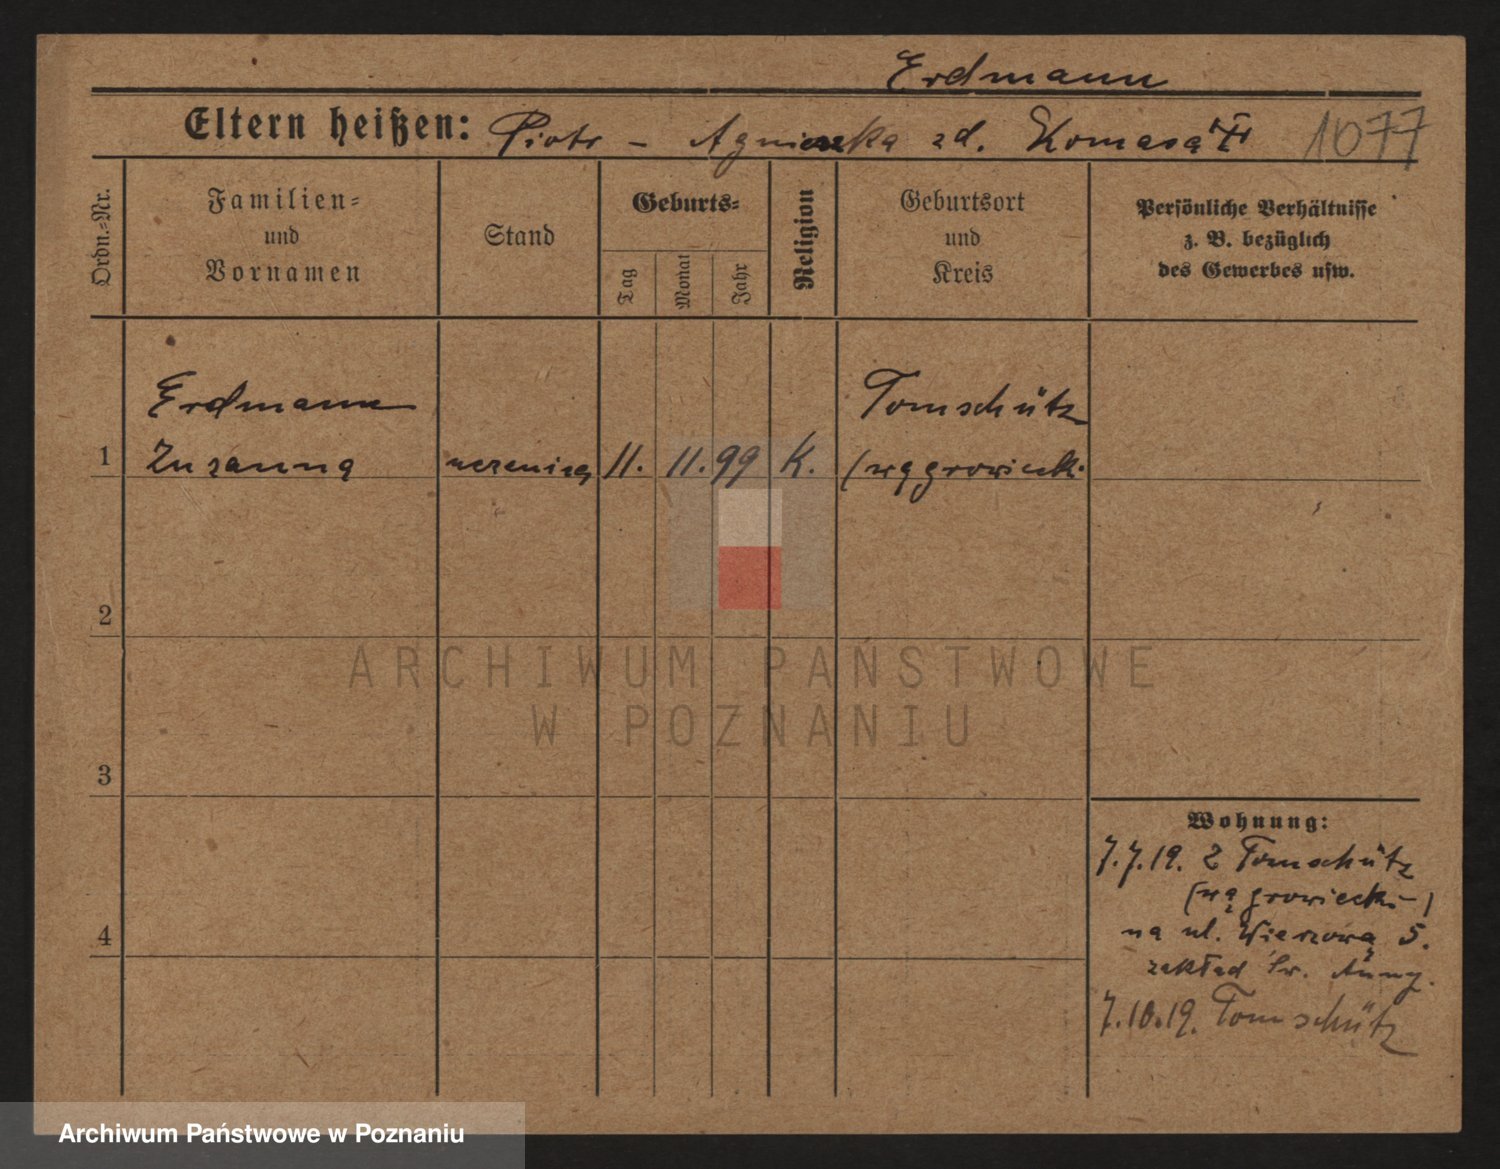 Erdmann
Eltern heißen: Piotr - Agnieszka zd. Komasa
1077
Ordn.-Nr.
Familien-
und
Vornamen
Stand
Geburts-
Tag
Monat
Jahr
Religion
Geburtsort
und
Kreis
Persönliche Verhältnisse
z. B. bezüglich
des Gewerbes usw.
Erdmann
Tomschütz
1 Zuzanna uczenica 11. 11. 99 K. (wągrowiecki
2
ARCHIWUM PAŃSTWOWE
W POZNANIU
3
Wohnung:
7.7.19. z Tomschütz
(wągrowiecki-)
na ul. Wieżową 5.
4
zakład św. Anny.
7.10.19. Tomschütz
Archiwum Państwowe w Poznaniu